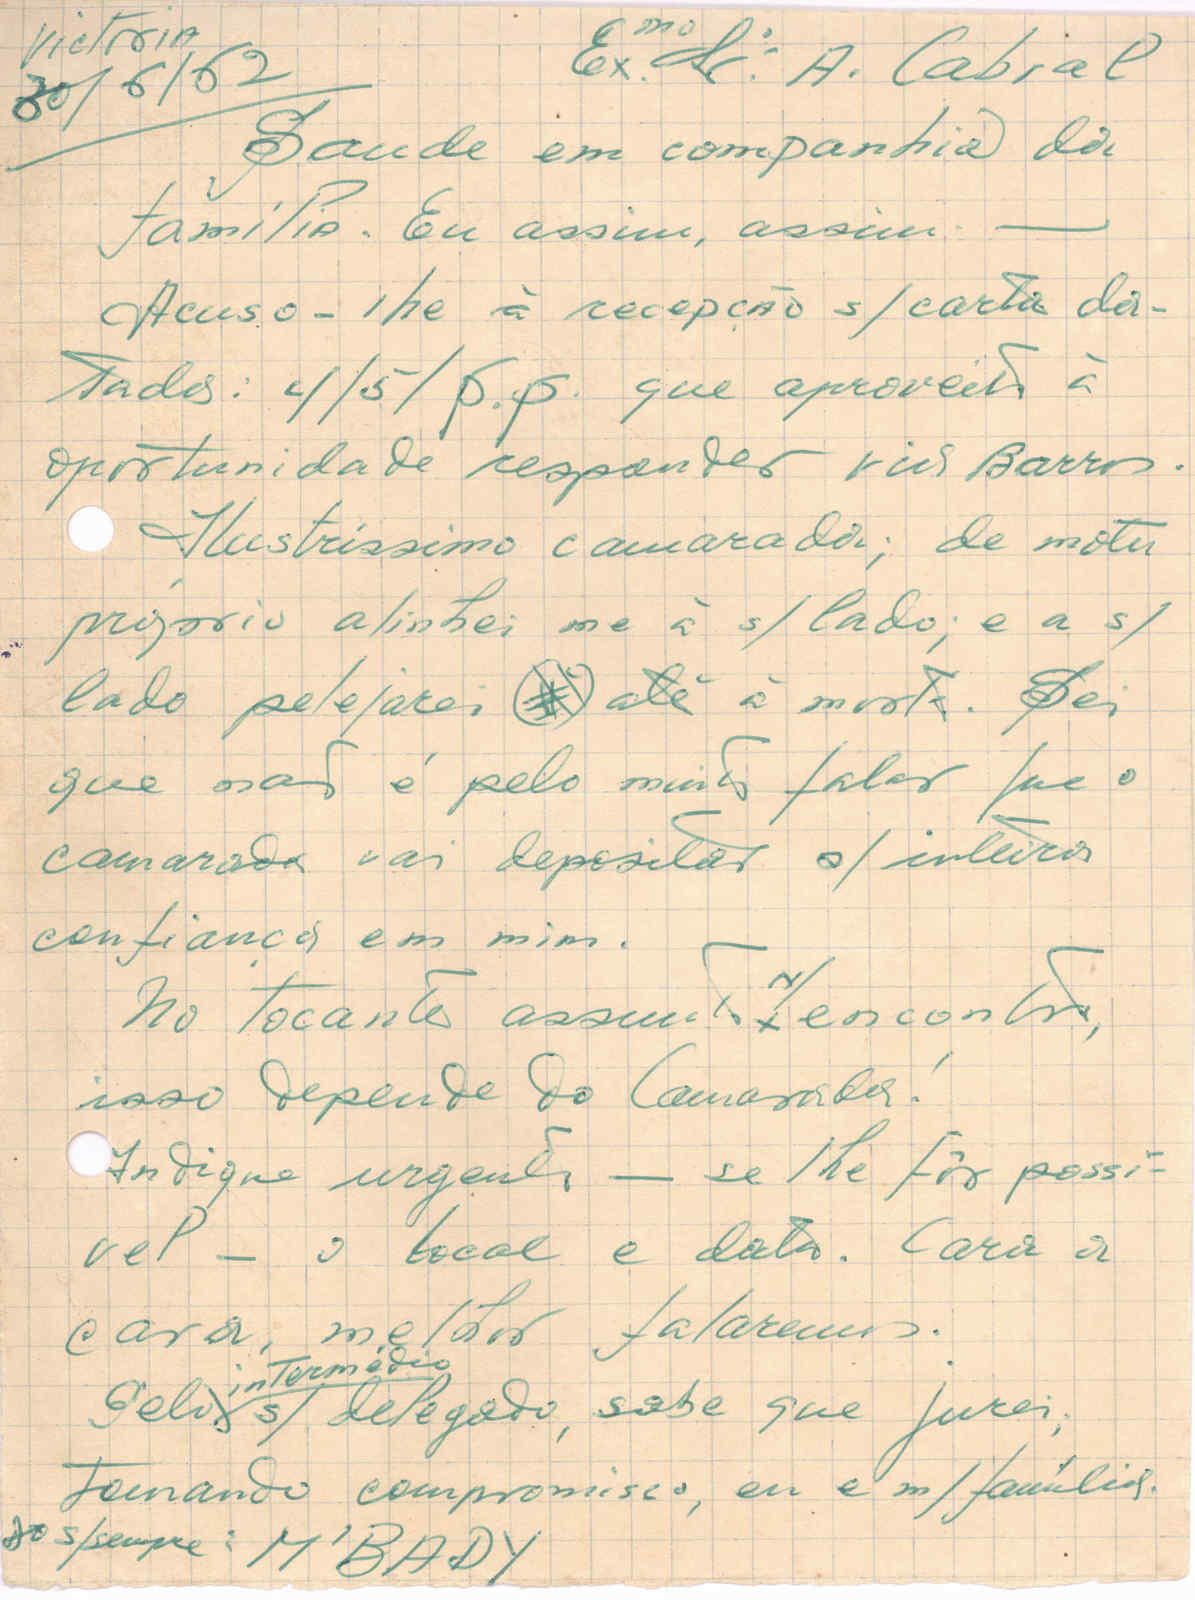 Victoria
30/6/62
Ex.mo Sr. A. Cabral
Saude em companhia da
família. Eu assim, assim. —
Acuso-lhe à recepção s/ carta da-
tada: 4/5/p.p. que aproveito à
oportunidade responder via Barros.
Ilustríssimo camarada; de motu
próprio alinhei me à s/ lado; e a s/
lado pelejarei até à morte. Sei
que não é pelo muito falar que o
camarada vai depositar s/ inteira
confiança em mim.
No tocante assunto N/ encontro,
isso depende do Camarada!
Indique urgente — se lhe fôr possí-
vel — o local e data. Cara a
cara, melhor falaremos.
intermédio
Pelo s/ delegado, sabe que jurei;
tomando compromisso, eu e m/ família.
Do s/sempre: M'BADY